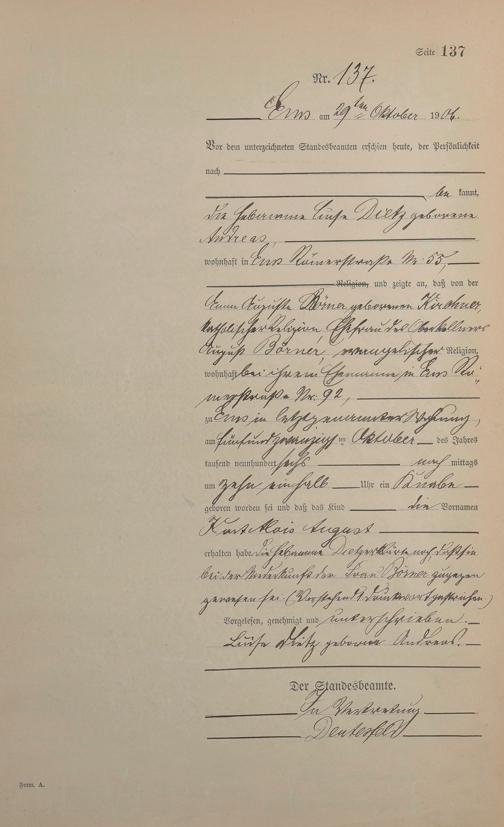 Seite 137
Nr. 137.
Ems am 29ten Oktober 1906.
Vor dem unterzeichneten Standesbeamten erschien heute, der Persönlichkeit
nach
be kannt,
die Hebamme Luise Dietz geborene
Andreas,
wohnhaft in Ems Römerstraße Nr. 55,
Religion, und zeigte an, daß von der
Anna Auguste Börner geborenen Kirchner,
katholischer Religion, Ehefrau des Oberkellners
August Börner, evangelischer Religion,
wohnhaft bei ihrem Ehemanne, in Ems Rö-
merstraße Nr. 92,
zu Ems in letztgenannter Wohnung,
am fünfundzwanzigsten Oktober des Jahres
tausend neunhundert sechs nach mittags
um zehn einhalb Uhr ein Knabe
geboren worden sei und daß das Kind die Vornamen
Kurt Alois August
erhalten habe. Die Hebamme Dietz erklärte noch, daß sie
bei der Niederkunft der Frau Börner zugegen
gewesen sei. (Vorstehend 1 Druckwort gestrichen.)
Vorgelesen, genehmigt und unterschrieben.
Luise Dietz geborene Andreas.
Der Standesbeamte.
In Vertretung
Form. A.